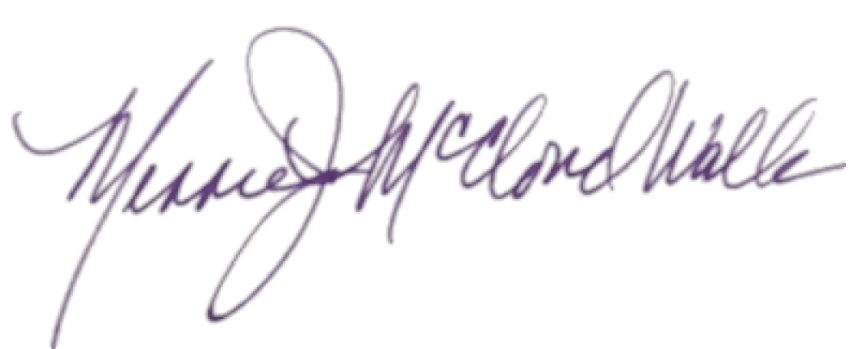 Merrie J. McCloud Walls